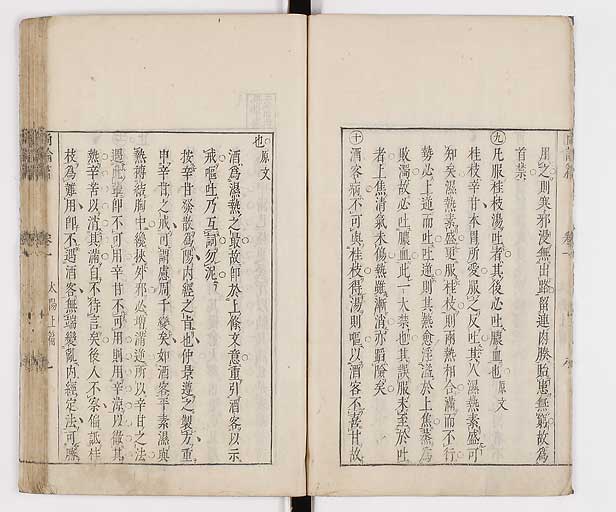 用之則寒邪漫無出路留連肉腠貽患無窮故為
首禁
九凡服桂枝湯吐者其後必吐膿血也原文
桂枝辛甘本胃所愛服之反吐其人濕熱素盛可
知矣濕熱素盛更服桂枝則兩熱相合滿而不行
勢必上逆而吐吐逆則其熱愈淫溢於上焦蒸為
敗濁故必吐膿血此一大禁也其誤服未至於吐
者上焦清氣未傷熱雖漸消亦蹈險矣
十酒客病不可與桂枝湯得湯則嘔以酒客不喜甘故
也原文
酒為濕熱之最故即於上條文意重引酒客以示
戒嘔吐乃互詞勿泥
按辛甘發散為陽內經之旨也仲景遵之製方重
申辛甘之戒可謂慮周千變矣如酒客平素濕與
熱摶結胸中纔挾外邪必增滿逆所以辛甘之法
遇此輩即不可用辛甘不可用則用辛涼以徹其
熱辛苦以消其滿自不待言矣後人不察偏詆桂
枝為難用即不遇酒客無端變亂內經定法可勝
尚論篇 卷一 太陽上篇